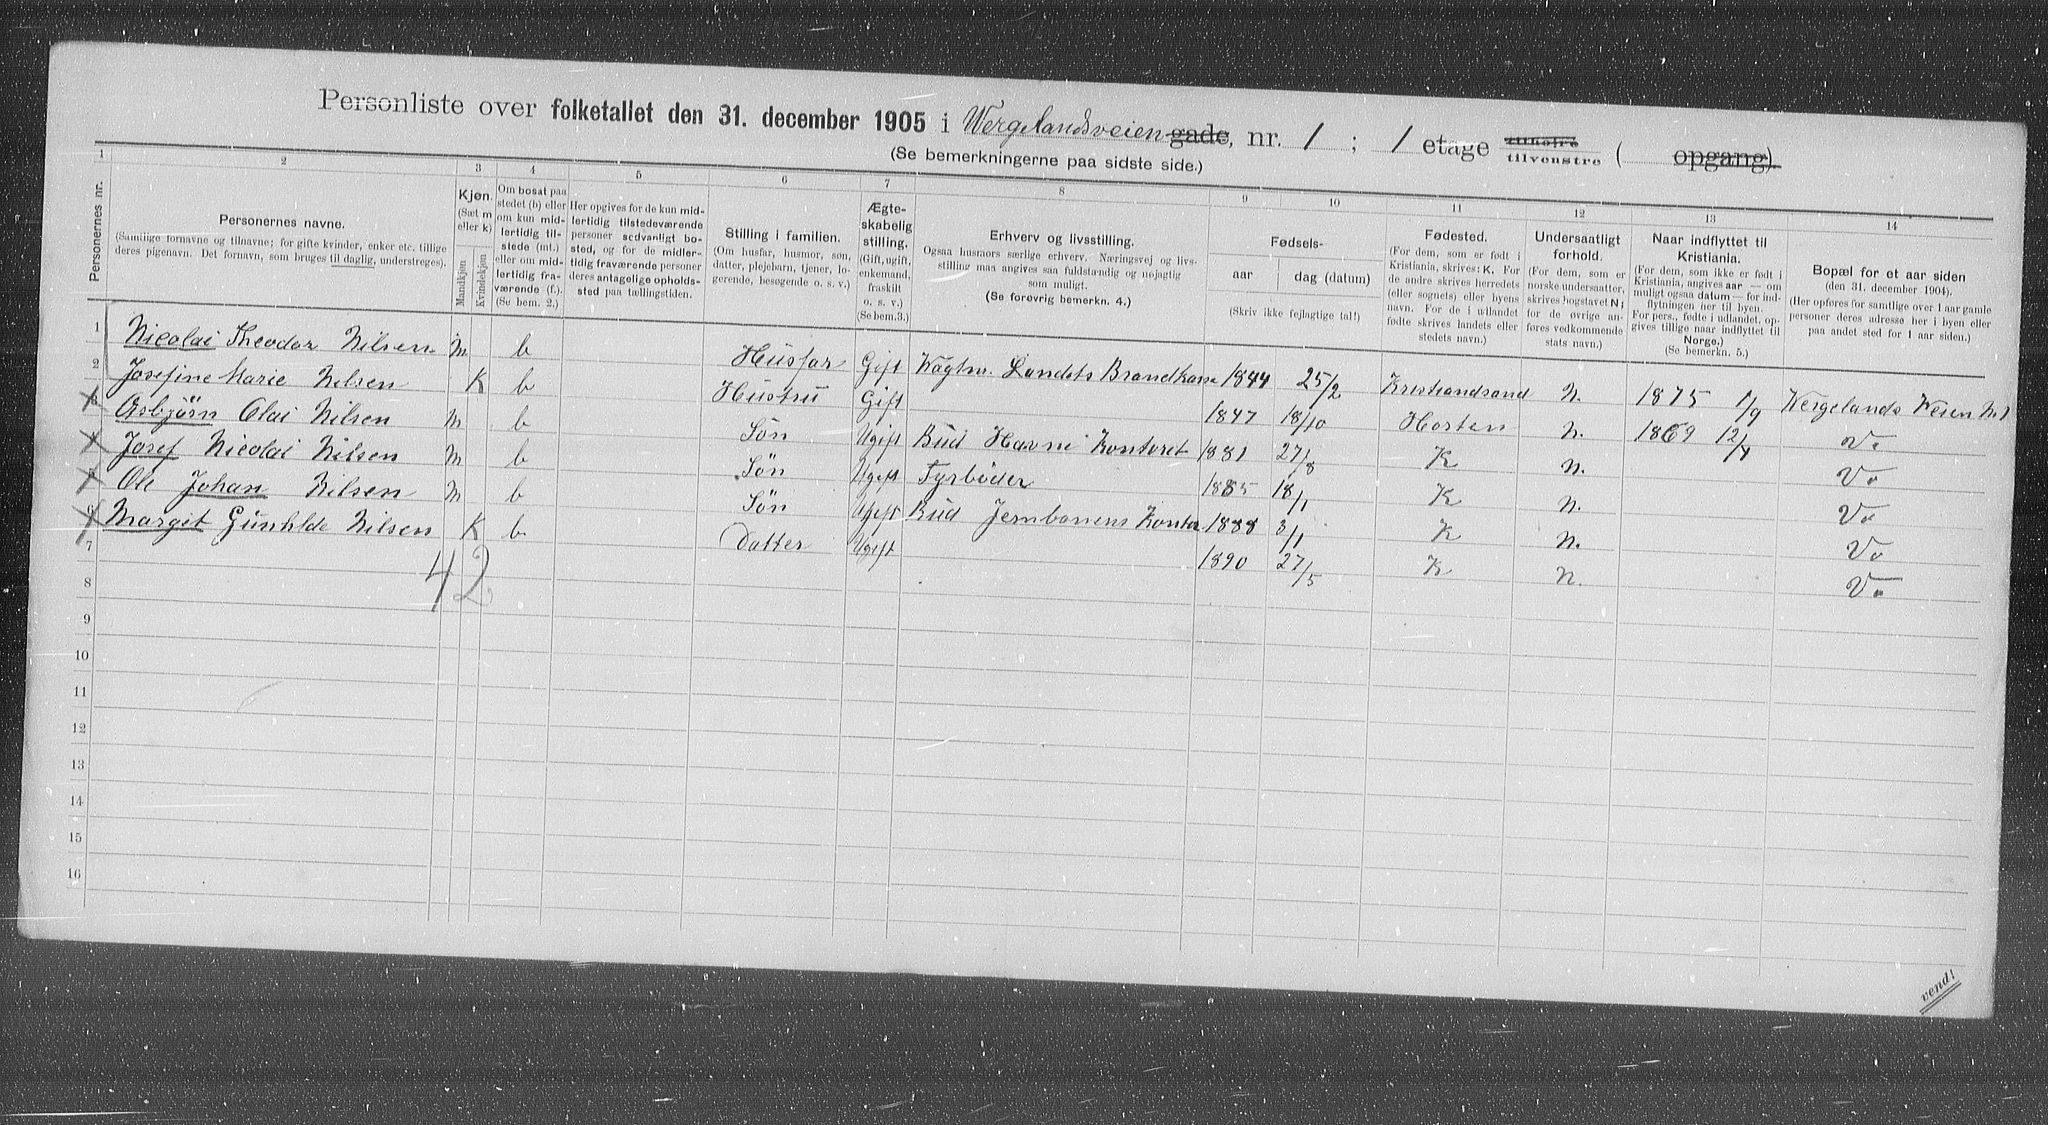 Personliste over folketallet den 31. december 1905 i Wergelandsveien gade, nr. 1 ; 1 etage tilhøire tilvenstre ( opgang).
(Se bemerkningerne paa sidste side.)
1 2 3 4 5 6 7 8 9 10 11 12 13 14
Personernes nr.
Personernes navne.
(Samtlige fornavne og tilnavne; for gifte kvinder, enker etc. tillige
deres pigenavn. Det fornavn, som bruges til daglig, understreges).
Kjøn.
(Sæt m
eller k)
Mandkjøn
Kvindekjøn
Om bosat paa
stedet (b) eller
om kun mid-
lertidig til-
stede (mt.)
eller om mid-
lertidig fra-
værende (f.).
(Se bem. 2.)
Her opgives for de kun mid-
lertidig tilstedeværende
personer sedvanligt bo-
sted, og for de midler-
tidig fraværende personer
deres antagelige opholds-
sted paa tællingstiden.
Stilling i familien.
(Om husfar, husmor, søn,
datter, plejebarn, tjener, lo-
gerende, besøgende o. s. v.)
Ægte-
skabelig
stilling.
(Gift, ugift,
enkemand,
fraskilt
o. s. v.)
(Se bem. 3.)
Erhverv og livsstilling.
Ogsaa husmors særlige erhverv. Næringsvej og livs-
stilling maa angives saa fuldstændig og nøjagtig
som muligt.
(Se forøvrig bemerkn. 4.)
Fødsels-
aar
dag (datum)
(Skriv ikke fejlagtige tal!)
Fødested.
(For dem, som er født i
Kristiania, skrives: K. For
de andre skrives herredets
(eller sognets) eller byens
navn. For de i udlandet
fødte skrives landets eller
stedets navn.)
Undersaatligt
forhold.
(For dem, som er
norske undersaatter,
skrives bogstavet N;
for de øvrige an-
føres vedkommende
stats navn.)
Naar indflyttet til
Kristiania.
(For dem, som ikke er født i
Kristiania, angives aar — om
muligt ogsaa datum — for ind-
flytningen her til byen.
For pers., fødte i udlandet, op-
gives tillige naar indflyttet til
Norge.)
(Se bemerkn. 5.)
Bopæl for et aar siden
(den 31. december 1904).
(Her opføres for samtlige over 1 aar gamle
personer deres adresse her i byen eller
paa andet sted for 1 aar siden.)
1 Nicolai Theodor Nilsen m b Husfar Gift Landets Brandkasse 1844 25/2 Kristiandsand N. 1875 1/9 Wergelands Veien No 1
2 Josefine Marie Nilsen K b Hustru Gift 1847 18/10 Horten N. 1869 12/4 Do
3 Asbjørn Olai Nilsen m b Søn Ugift Bud Havne Kontoret 1881 27/8 K N. Do
4 Josef Nicolai Nilsen m b Søn Ugift Fyrbøder 1885 18/1 K N. Do
5 Ole Johan Nilsen m b Søn Ugift Bud Jernbanens Kontor 1888 3/1 K N. Do
6 Margit Gunhilde Nilsen K b Datter Ugift 1890 27/5 K N. Do
7
42
8
9
10
11
12
13
14
15
16
vend!